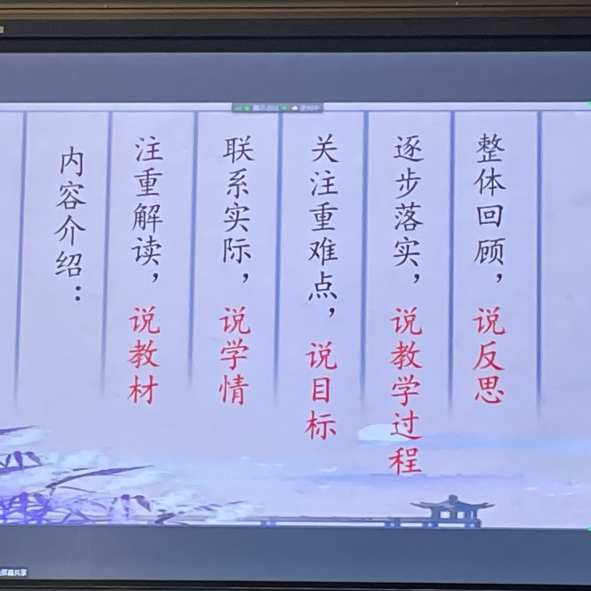 内容介绍：
注重解读，说教材
联系实际，说学情
关注重难点，说目标
逐步落实，说教学过程
整体回顾，说反思